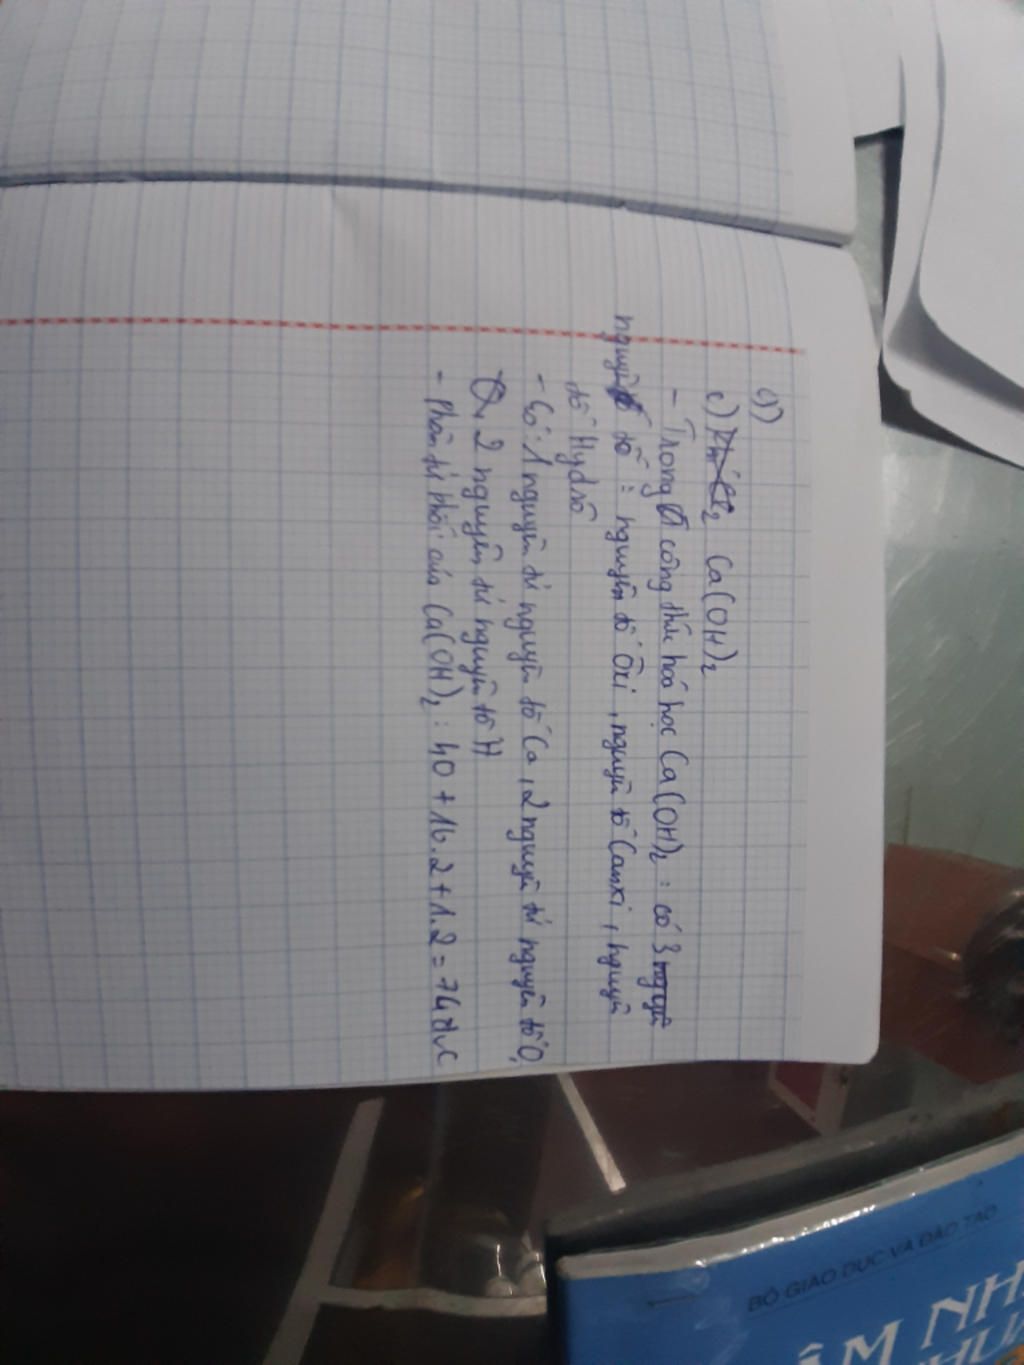 9)
c) Ca(OH)₂
- Trong công thức hoá học Ca(OH)₂ : có 3
nguyên tố : nguyên tố Oxi , nguyên tố Canxi , nguyên
tố Hydrô
- Có : 1 nguyên tử nguyên tố Ca , 2 nguyên tử nguyên tố O,
2 nguyên tử nguyên tố H
- Phân tử khối của Ca(OH)₂ : 40 + 16.2 + 1.2 = 74 đvC
BỘ GIÁO DỤC VÀ ĐÀO TẠO
ÂM NH